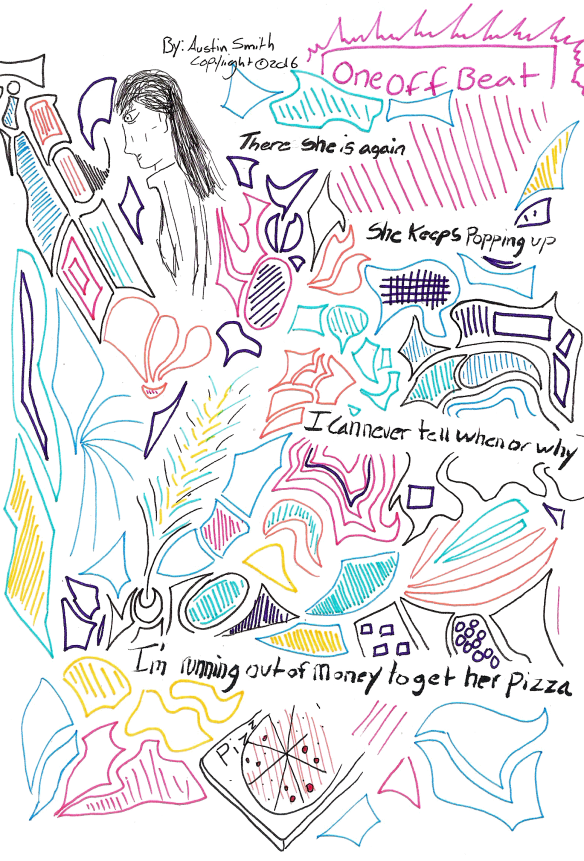 By: Austin Smith
Copyright ©2016
One Off Beat
There she is again
She Keeps Popping up
I can never tell when or why
I'm running out of money to get her pizza
Pizza